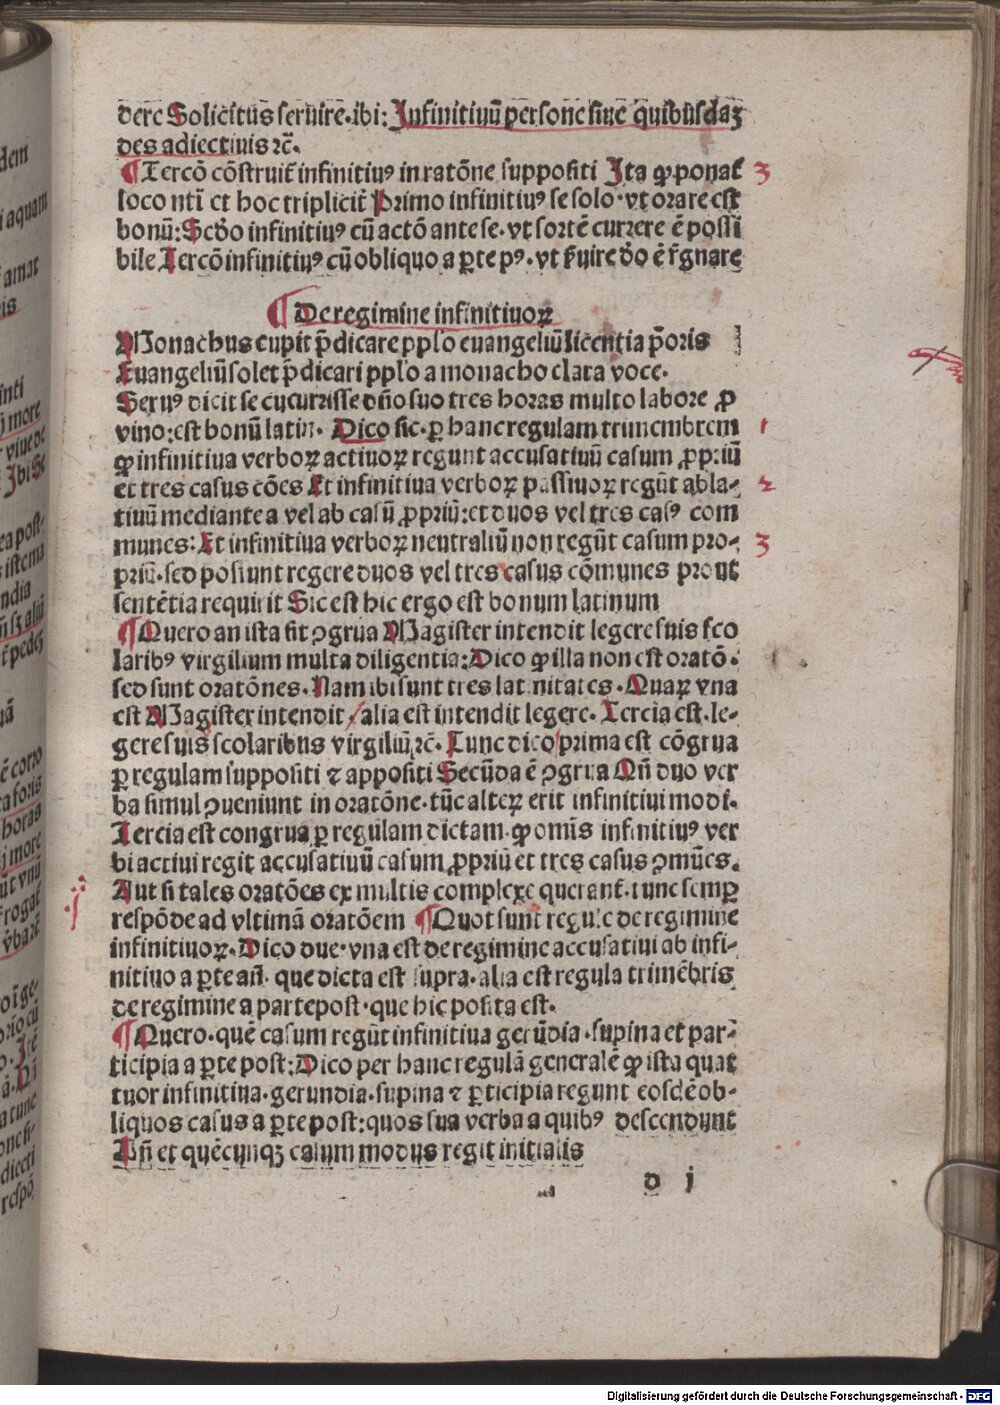 dere Solicitus seruire. ibi: Infinitiuū persone siue quibusdaꝫ
des adiectiuis ⁊c̄.
¶ Tercō cōstruit̄ infinitiuꝰ in ratōne suppositi Ita ꝙ ponat̄ 3
loco nti et hoc tripliciter Primo infinitiuꝰ se solo· vt orare est
bonū: Scd̄o infinitiuꝰ cū actō ante se· vt sortē currere ē possi
bile Tercō infinitiuꝰ cū obliquo a ꝑte pꝰ· vt ẜuire dō ē rḡnare
¶ De regimine infinitiuoꝝ
Monachus cupit p̄dicare pplo euangeliū licentia p̄oris
Euangeliū solet p̄dicari pplo a monacho clara voce.
Seruꝰ dicit se cucurrisse dn̄o suo tres horas multo labore ꝓ
vino: est bonū latin. Dico sic· ꝑ hanc regulam trimembrem 1
ꝙ infinitiua verboꝝ actiuoꝝ regunt accusatiuū casum ꝓpriū
et tres casus cōes Et infinitiua verboꝝ passiuoꝝ regūt abla- 2
tiuū mediante a vel ab casū ꝓpriū: et duos vel tres casꝰ com
munes: Et infinitiua verboꝝ neutraliū non regūt casum pro- 3
priū· sed possunt regere duos vel tres casus cōmunes prout
sentētia requirit Sic est hic ergo est bonum latinum
¶ Quero an ista sit ꝯgrua Magister intendit legere suis sco
laribꝰ virgilium multa diligentia: Dico ꝙ illa non est oratō.
sed sunt oratōnes. Nam ibi sunt tres latinitates. Quaꝝ vna
est Magister intendit / alia est intendit legere. Tercia est. le-
gere suis scolaribus virgiliū ⁊c̄. Tunc dico prima est cōgrua
ꝑ regulam suppositi ⁊ appositi Secūda ē ꝯgrua Qn̄ duo ver
ba simul ꝯueniunt in oratōne· tūc alteꝝ erit infinitiui modi.
Tercia est congrua ꝑ regulam dictam· ꝙ omīs infinitiuꝰ ver
bi actiui regit accusatiuū casum ꝓpriū et tres casus ꝯmūes.
Aut si tales oratōes ex multis complexe querant̄. tunc semꝑ
respōde ad vltimā oratōem ¶ Quot sunt regule de regimine
infinitiuoꝝ. Dico due· vna est de regimine accusatiui ab infi-
nitiuo a ꝑte an̄· que dicta est supra· alia est regula trimēbris
de regimine a parte post· que hic posita est.
¶ Quero· quē casum regūt infinitiua gerūdia· supina et par-
ticipia a ꝑte post: Dico per hanc regulā generalē ꝙ ista quat
tuor infinitiua· gerundia· supina ⁊ ꝑticipia regunt eosdē ob-
liquos casus a ꝑte post: quos sua verba a quibꝰ descendunt
An̄ et quēcunqꝫ casum modus regit initialis
d j
Digitalisierung gefördert durch die Deutsche Forschungsgemeinschaft · DFG